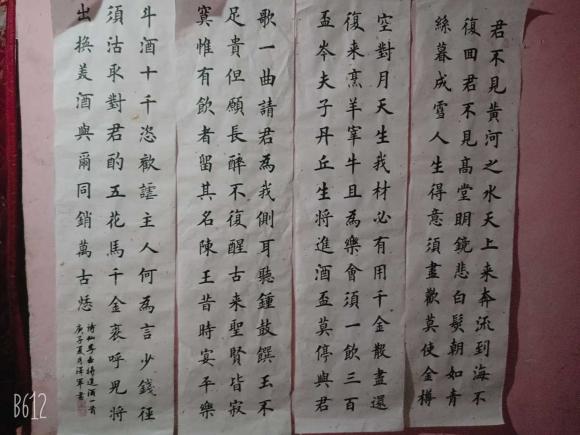 君不見黃河之水天上来奔流到海不
復回君不見高堂明鏡悲白髮朝如青
絲暮成雪人生得意須盡歡莫使金樽
空對月天生我材必有用千金散盡還
復来烹羊宰牛且為樂會須一飲三百
盃岑夫子丹丘生將進酒盃莫停與君
歌一曲請君為我側耳聽鍾鼓饌玉不
足貴但願長醉不復醒古来聖賢皆寂
寞惟有飲者留其名陳王昔時宴平樂
斗酒十千恣歡謔主人何為言少錢徑
須沽取對君酌五花馬千金裘呼兒將
出換美酒與爾同銷萬古愁
詩仙李白將進酒一首
庚子夏月漢軍書
B612